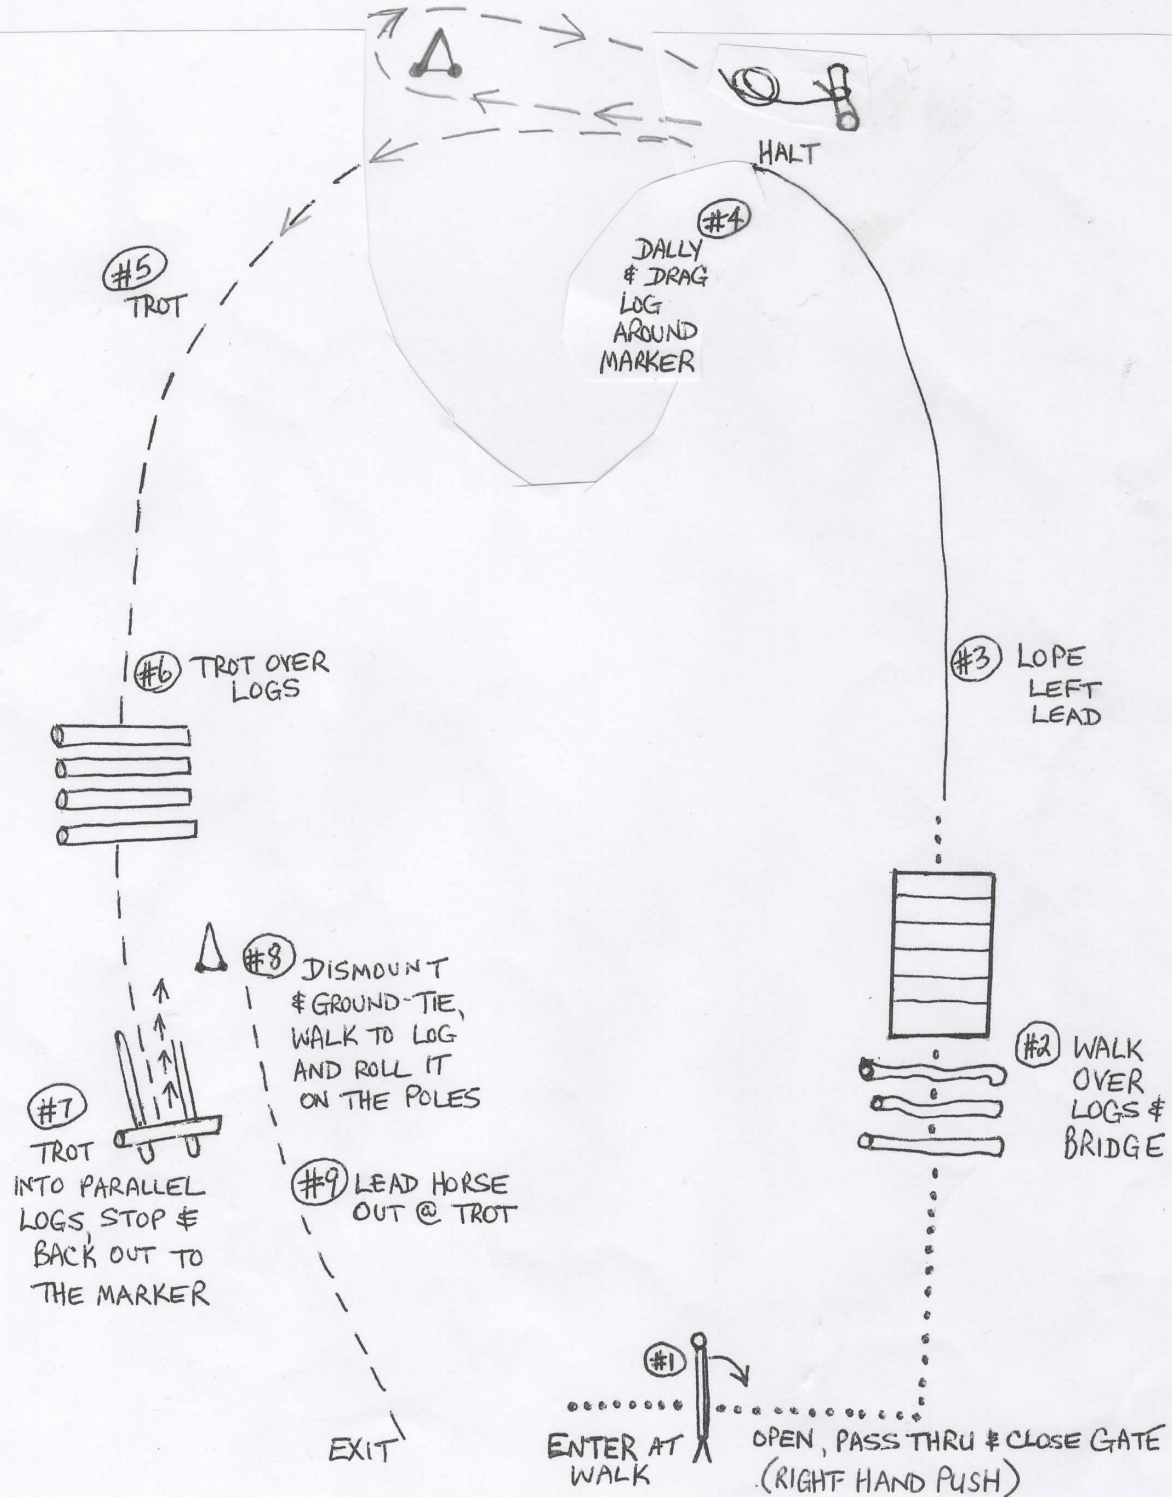 HALT
#4
DALLY
& DRAG
LOG
AROUND
MARKER
#5
TROT
#6 TROT OVER
LOGS
#3 LOPE
LEFT
LEAD
#8 DISMOUNT
& GROUND-TIE,
WALK TO LOG
AND ROLL IT
ON THE POLES
#2 WALK
OVER
LOGS &
BRIDGE
#7
TROT
INTO PARALLEL
LOGS, STOP &
BACK OUT TO
THE MARKER
#9 LEAD HORSE
OUT @ TROT
#1
EXIT
ENTER AT
WALK
OPEN, PASS THRU & CLOSE GATE
(RIGHT HAND PUSH)